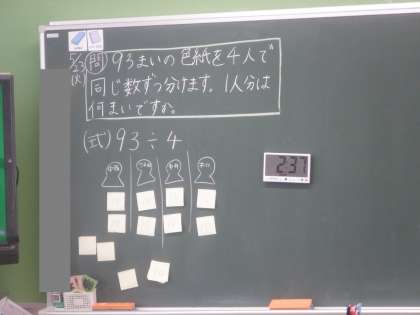 5/23
(火)
問 93まいの色紙を4人で
同じ数ずつ分けます。1人分は
何まいですか。
(式) 93÷4
2:37
10